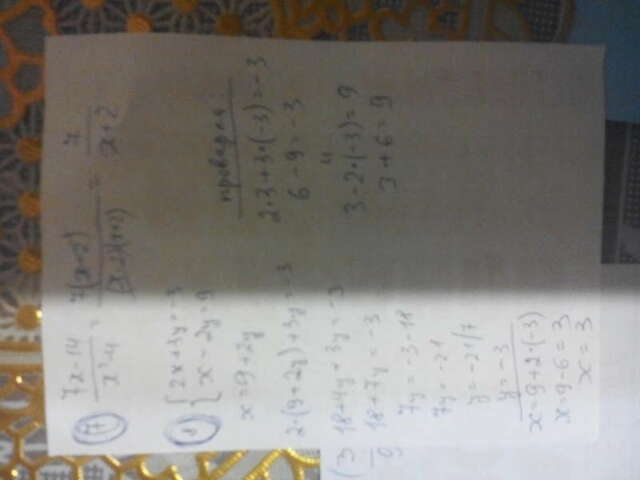 7 7x-14 / x²-4 = 7(x-2) / (x-2)(x+2) = 7 / x+2
{ 2x+3y=-3
{ x-2y=9
x=9+2y
2·(9+2y)+3y=-3
18+4y+3y=-3
18+7y=-3
7y=-3-18
7y=-21
y=-21/7
y=-3
x=9+2·(-3)
x=9-6=3
x=3
проверка:
2·3+3·(-3)=-3
6-9=-3
3-2·(-3)=9
3+6=9